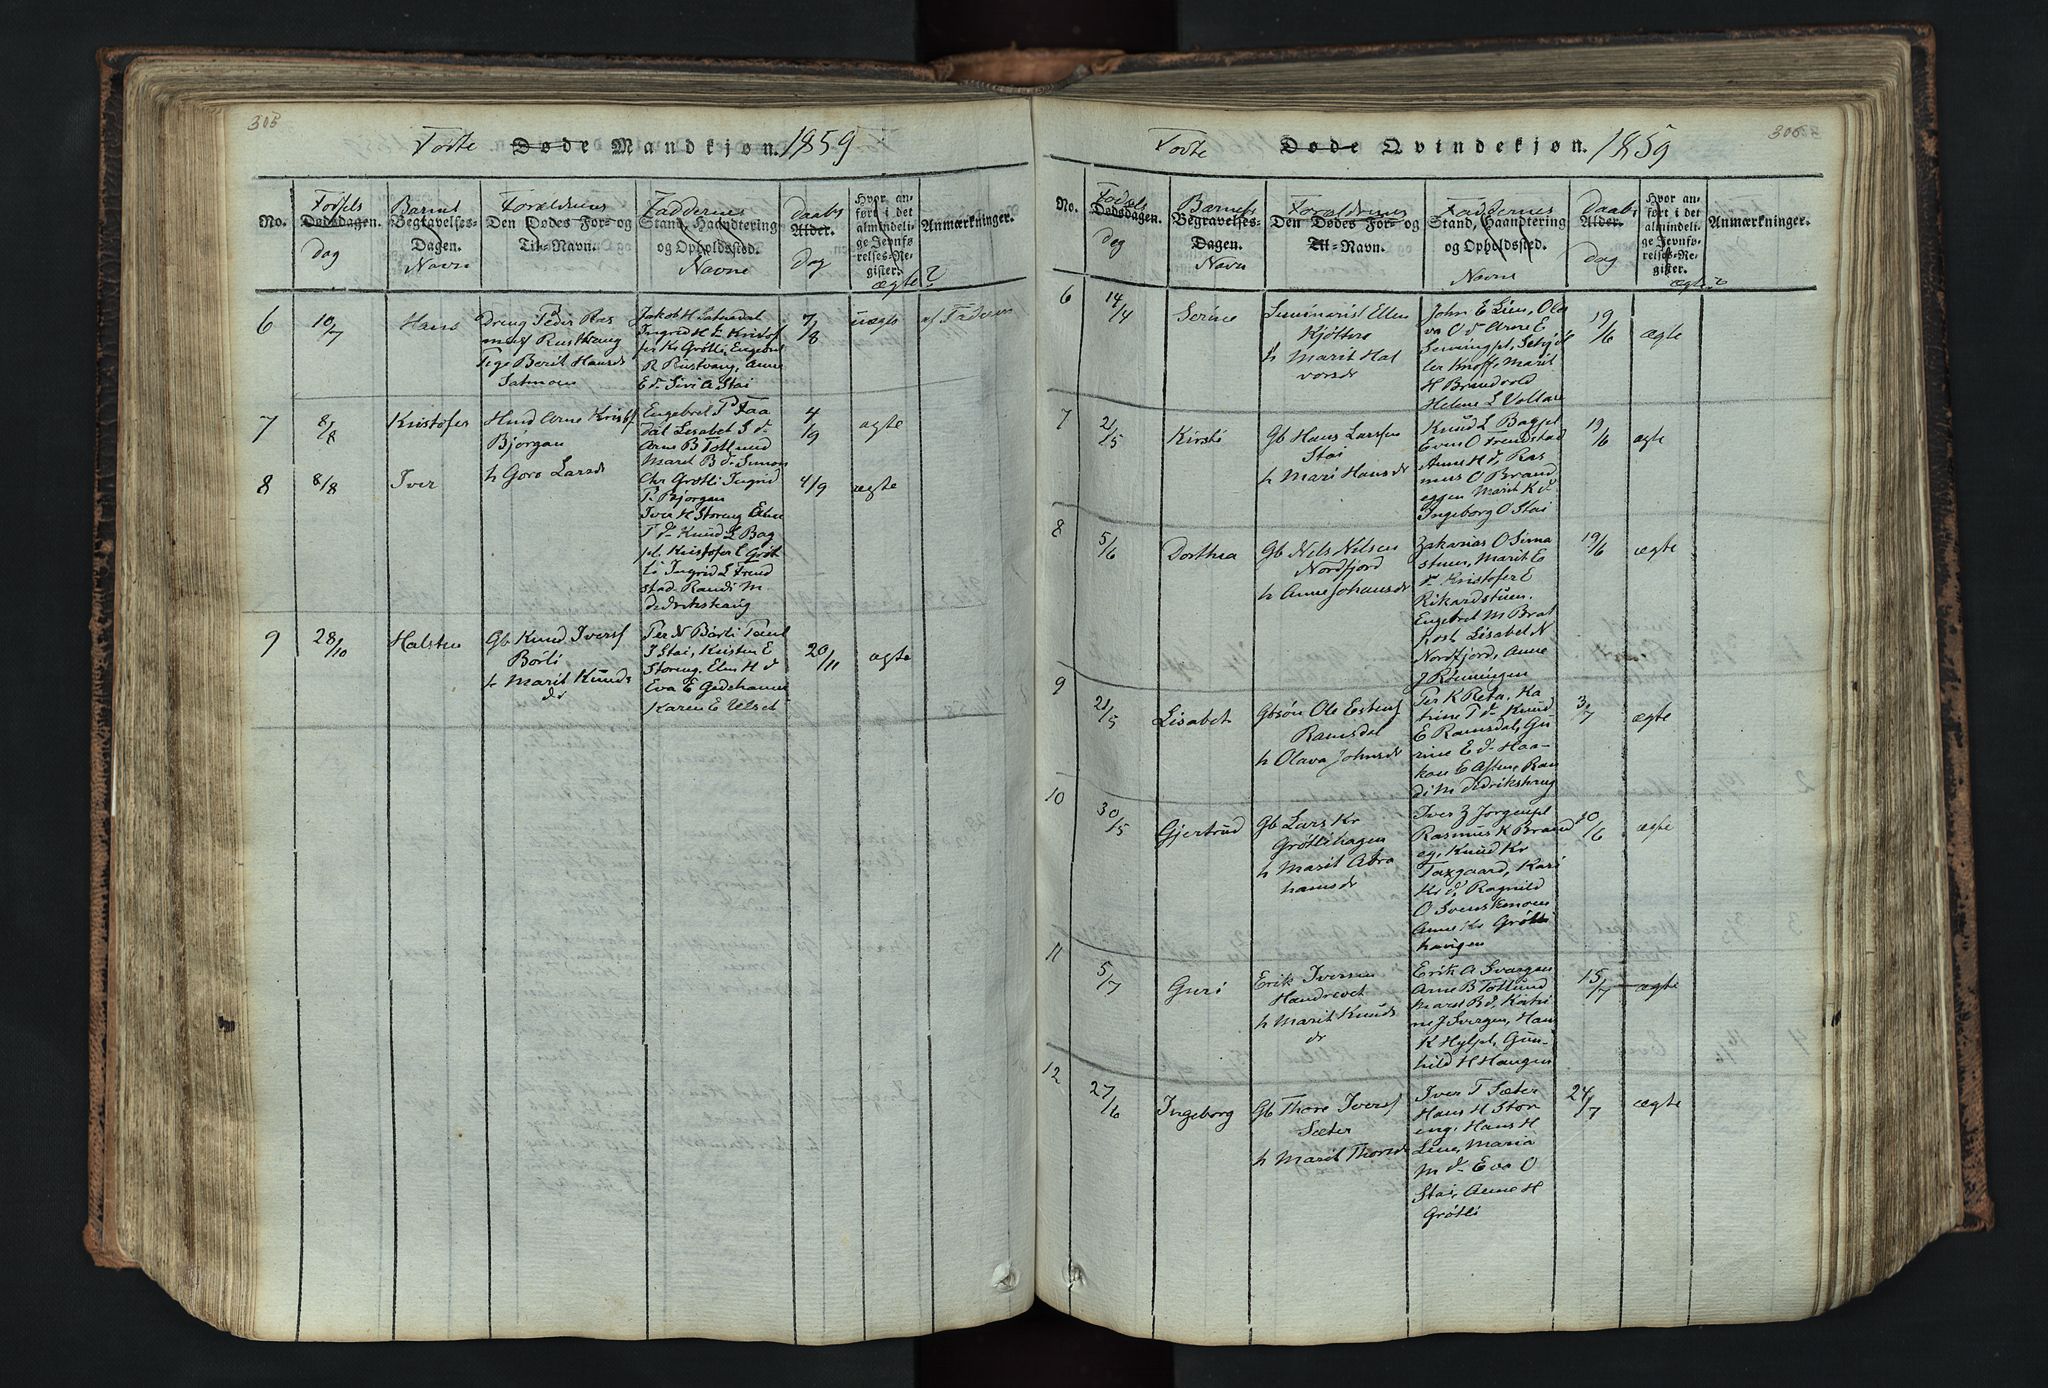 305
Føste Døde Mandkjøn. 1859
No.
Fødsels
Dødsdagen.
Dag
Barnets
Begravelses-
Dagen.
Navn
Forældrenes
Den Dødes For- og
Til-Navn.
Faddernes
Stand, Haandtering
og Opholdssted.
Navne
Daabs
Alder.
Dag
Hvor an-
ført i det
almindeli-
ge Jevnfø-
relses-Re-
gister.
ægte?
Anmærkninger.
6
10/7
Hans
Dreng Peder Ras
Pige Berit Hansd
Jakob H
Ingrid H E Kristof
fer Kr Grøtli, Engebret
R Rustvang, Anne
E d. Sivi A Stai
7/8
uægte
af Faderen
7
8/8
Kristofer
Arne Kristof
Bjørgan
h Goro Larsd
Engebret P Faa
dal Lisabet S d.
Arne B Totlund
Maret B d. Simon
4/9
ægte
8
8/8
Iver
Chr Grøtli Ingrid
P. Bjørgan
Iver H Storeng
T d. Knud L Bag
pl. Kristofer E Grøt
li Ingrid L Trend
stad. Randi M
didrikshaug
4/9
ægte
9
28/10
Halsten
Gb Knud Iversf
Børli
h Marit Knuds
dr
Per N Børli
J Stai, Kristen E
Storeng. Elen H d
Eva E
Karen E Ulset
20/11
ægte
306
Døde Qvindekjøn. 1859
No.
Fødsels
Dødsdagen.
dag
Barnets
Begravelses-
Dagen.
Navn
Forældrenes
Den Dødes For- og
Til-Navn.
Faddernes
Stand, Haandtering
og Opholdssted.
Navne
Daabs
Alder.
Dag
Hvor an-
ført i det
almindeli-
ge Jevnfø-
relses-Re-
gister.
ægte?
Anmærkninger.
6
14/4
Serine
Seminarist Ellen
h Marit Hal
vorsdr
John E Lien, Ola
va O d. Arne E
ler Knoff, Marit
H Brandvold
Helene L Voltare
19/6
ægte
7
2/5
Kirsti
Gb Hans Larsen
Stai
h Mari Hansdr
Knud L Bagpl
Even O Trendstad
Anne H d, Ras
mus O Brand
eggen Marit K d.
Ingeborg O Stai
19/6
ægte
8
5/6
Dorthea
Gb Nels Nelsen
Nordfjord
h Anne Johansdr
Zakarias O Sima
stuen, Marit E
d. Kristofer E
Rikardstuen.
Engebret M Brat
Lisabet N
Nordfjord, Anne
J Rønningen
19/6
ægte
9
21/5
Lisabet
Gbsøn Ole Estensf
Ramsdal
h Olava Johnsdr
Per K Reta, Ka
trine T d. Knud
E Ramsdal, Gu
rine E d. Haa-
kon E Aften, Ran
di M didrikshaug
3/7
ægte
10
30/5
Gjertrud
Gb Lars Kr
Grøtlihagen
h Marit Abra
hamsdr
Iver Z Jørgenpl
Rasmus K Brand
eg, Knud Kr
Taxgaard, Kari
Kr d, Ragnild
O Svenskmoen
Anne Kr Grøtli
havigen
30/6
ægte
11
5/7
Guri
Erik Iversen
h Marit Knuds
dr
Erik A Svargen
Arne B Totlund
Maret B d. Katri
ne J Svergen, Hans
K Hylpl, Gun-
hild H Haugen
15/7
ægte
12
27/6
Ingeborg
Gb Thore Iversf
Sæter
h Marit Thorsdr
Iver T Sæter
Hans H Stor
eng. Hans H
Lien, Maria
M d. Eva O
Stai, Anne H
Grøtli
24/7
ægte